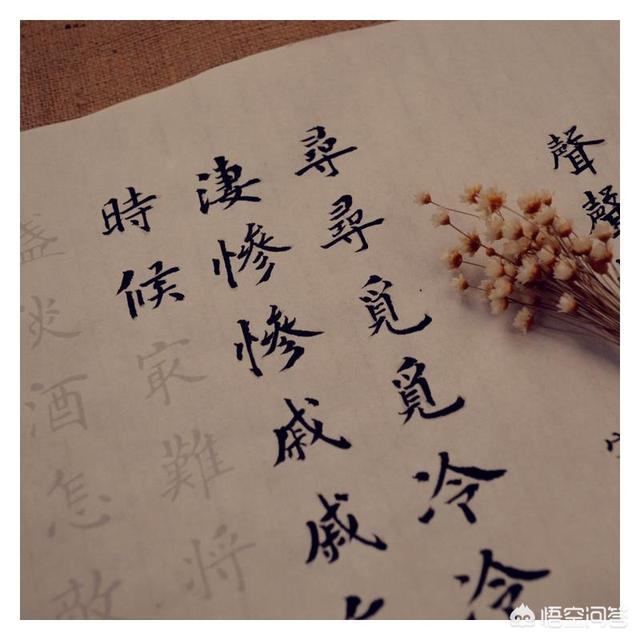 聲聲
尋尋覓覓冷冷
淒慘慘戚戚
時候㝡難將
盞淡酒怎敵
悟空问答